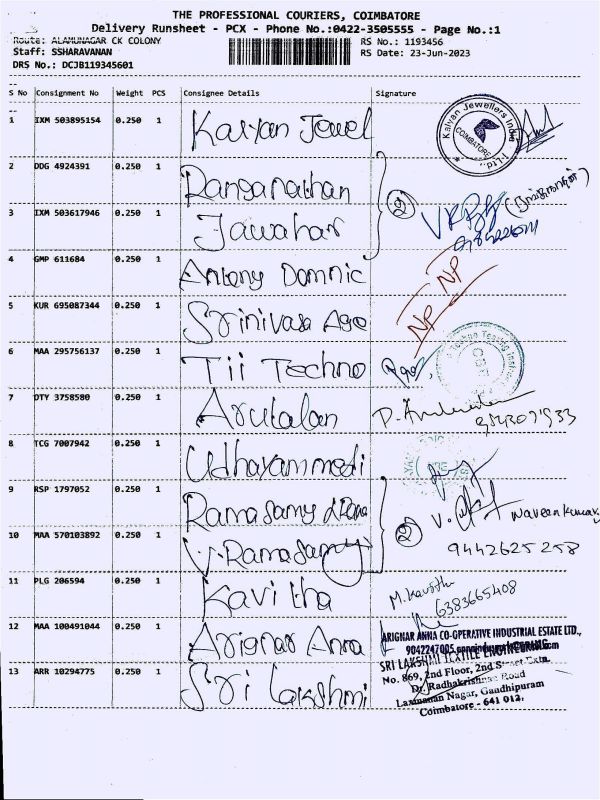 THE PROFESSIONAL COURIERS, COIMBATORE
Delivery Runsheet - PCX - Phone No.:0422-3505555 - Page No.:1
Route: ALAMUNAGAR CK COLONY RS No.: 1193456
Staff: SSHARAVANAN RS Date: 23-Jun-2023
DRS No.: DCJB119345601
S No Consignment No Weight PCS Consignee Details Signature
1 IXM 503895154 0.250 1 Kalyan Jewel Kalyan Jewellers India Ltd., COIMBATORE
2 DDG 4924391 0.250 1 Ranganathan
3 IXM 503617946 0.250 1 Jawahar 2
4 GMP 611684 0.250 1 Antony Domnic NP NP
5 KUR 695087344 0.250 1 Srinivasa Age
6 MAA 295756137 0.250 1 Tii Techno
7 DTY 3758580 0.250 1 Arulalan
8 TCG 7007942 0.250 1 Udhayam medi
9 RSP 1797052 0.250 1 Ramasamy 2 Naveen kumar
10 MAA 570103892 0.250 1 V. Ramasamy 9442625258
11 PLG 206594 0.250 1 Kavitha M. Kavitha
6383665408
12 MAA 100491044 0.250 1 Arignar Anna ARIGNAR ANNA CO-OPERATIVE INDUSTRIAL ESTATE LTD.,
9042247005
SRI LAKSHMI TEXTILE ENGINEERING
13 ARR 10294775 0.250 1 Sri Lakshmi No. 869, 2nd Floor, 2nd Street Extn.
Dr. Radhakrishnan Road
Laxmanan Nagar, Gandhipuram
Coimbatore - 641 012.